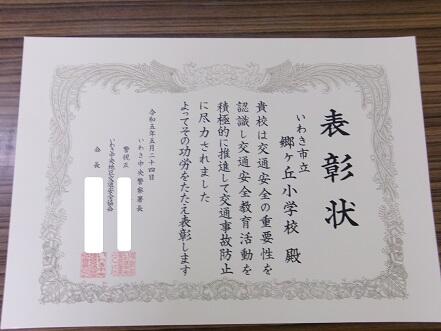 表彰状
いわき市立
郷ヶ丘小学校 殿
貴校は交通安全の重要性を
認識し交通安全教育活動を
積極的に推進して交通事故防止
に尽力されました
よってその功労をたたえ表彰します
令和五年五月二十四日
いわき中央警察署長
警視正
いわき中央地区交通安全協会
会長